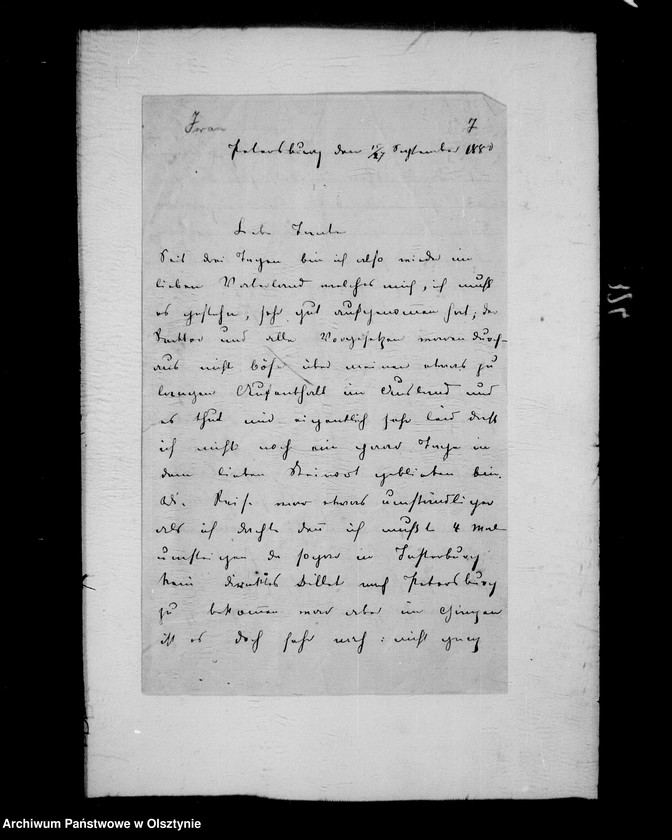 Iwan
7
Petersburg den 15/27 September 188
Liebe Tante
Seit drei Tagen bin ich also wieder im
lieben Vaterland welches mich, ich muß
es gestehn, sehr gut aufgenomen hat; der
und alle Vorgesetzen waren durch-
aus nicht böse über meinen etwas zu
langen Aufenthalt im Ausland und
es thut mir eigentlich sehr leid daß
ich nicht noch ein paar Tage in
dem lieben Steinort geblieben bin.
Reise war etwas umständlicher
als ich dachte den ich mußte 4 Mal
umsteigen da sogar in Insterburg
kein direktes Billet nach Petersburg
zu bekomen war aber im Ganzen
ist es doch sehr nah: nicht ganz
124
Archiwum Państwowe w Olsztynie